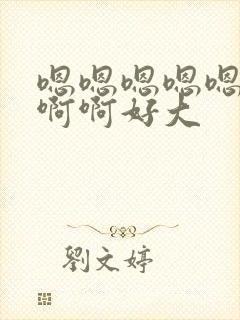 嗯嗯嗯嗯嗯
啊啊好大
劉文婷